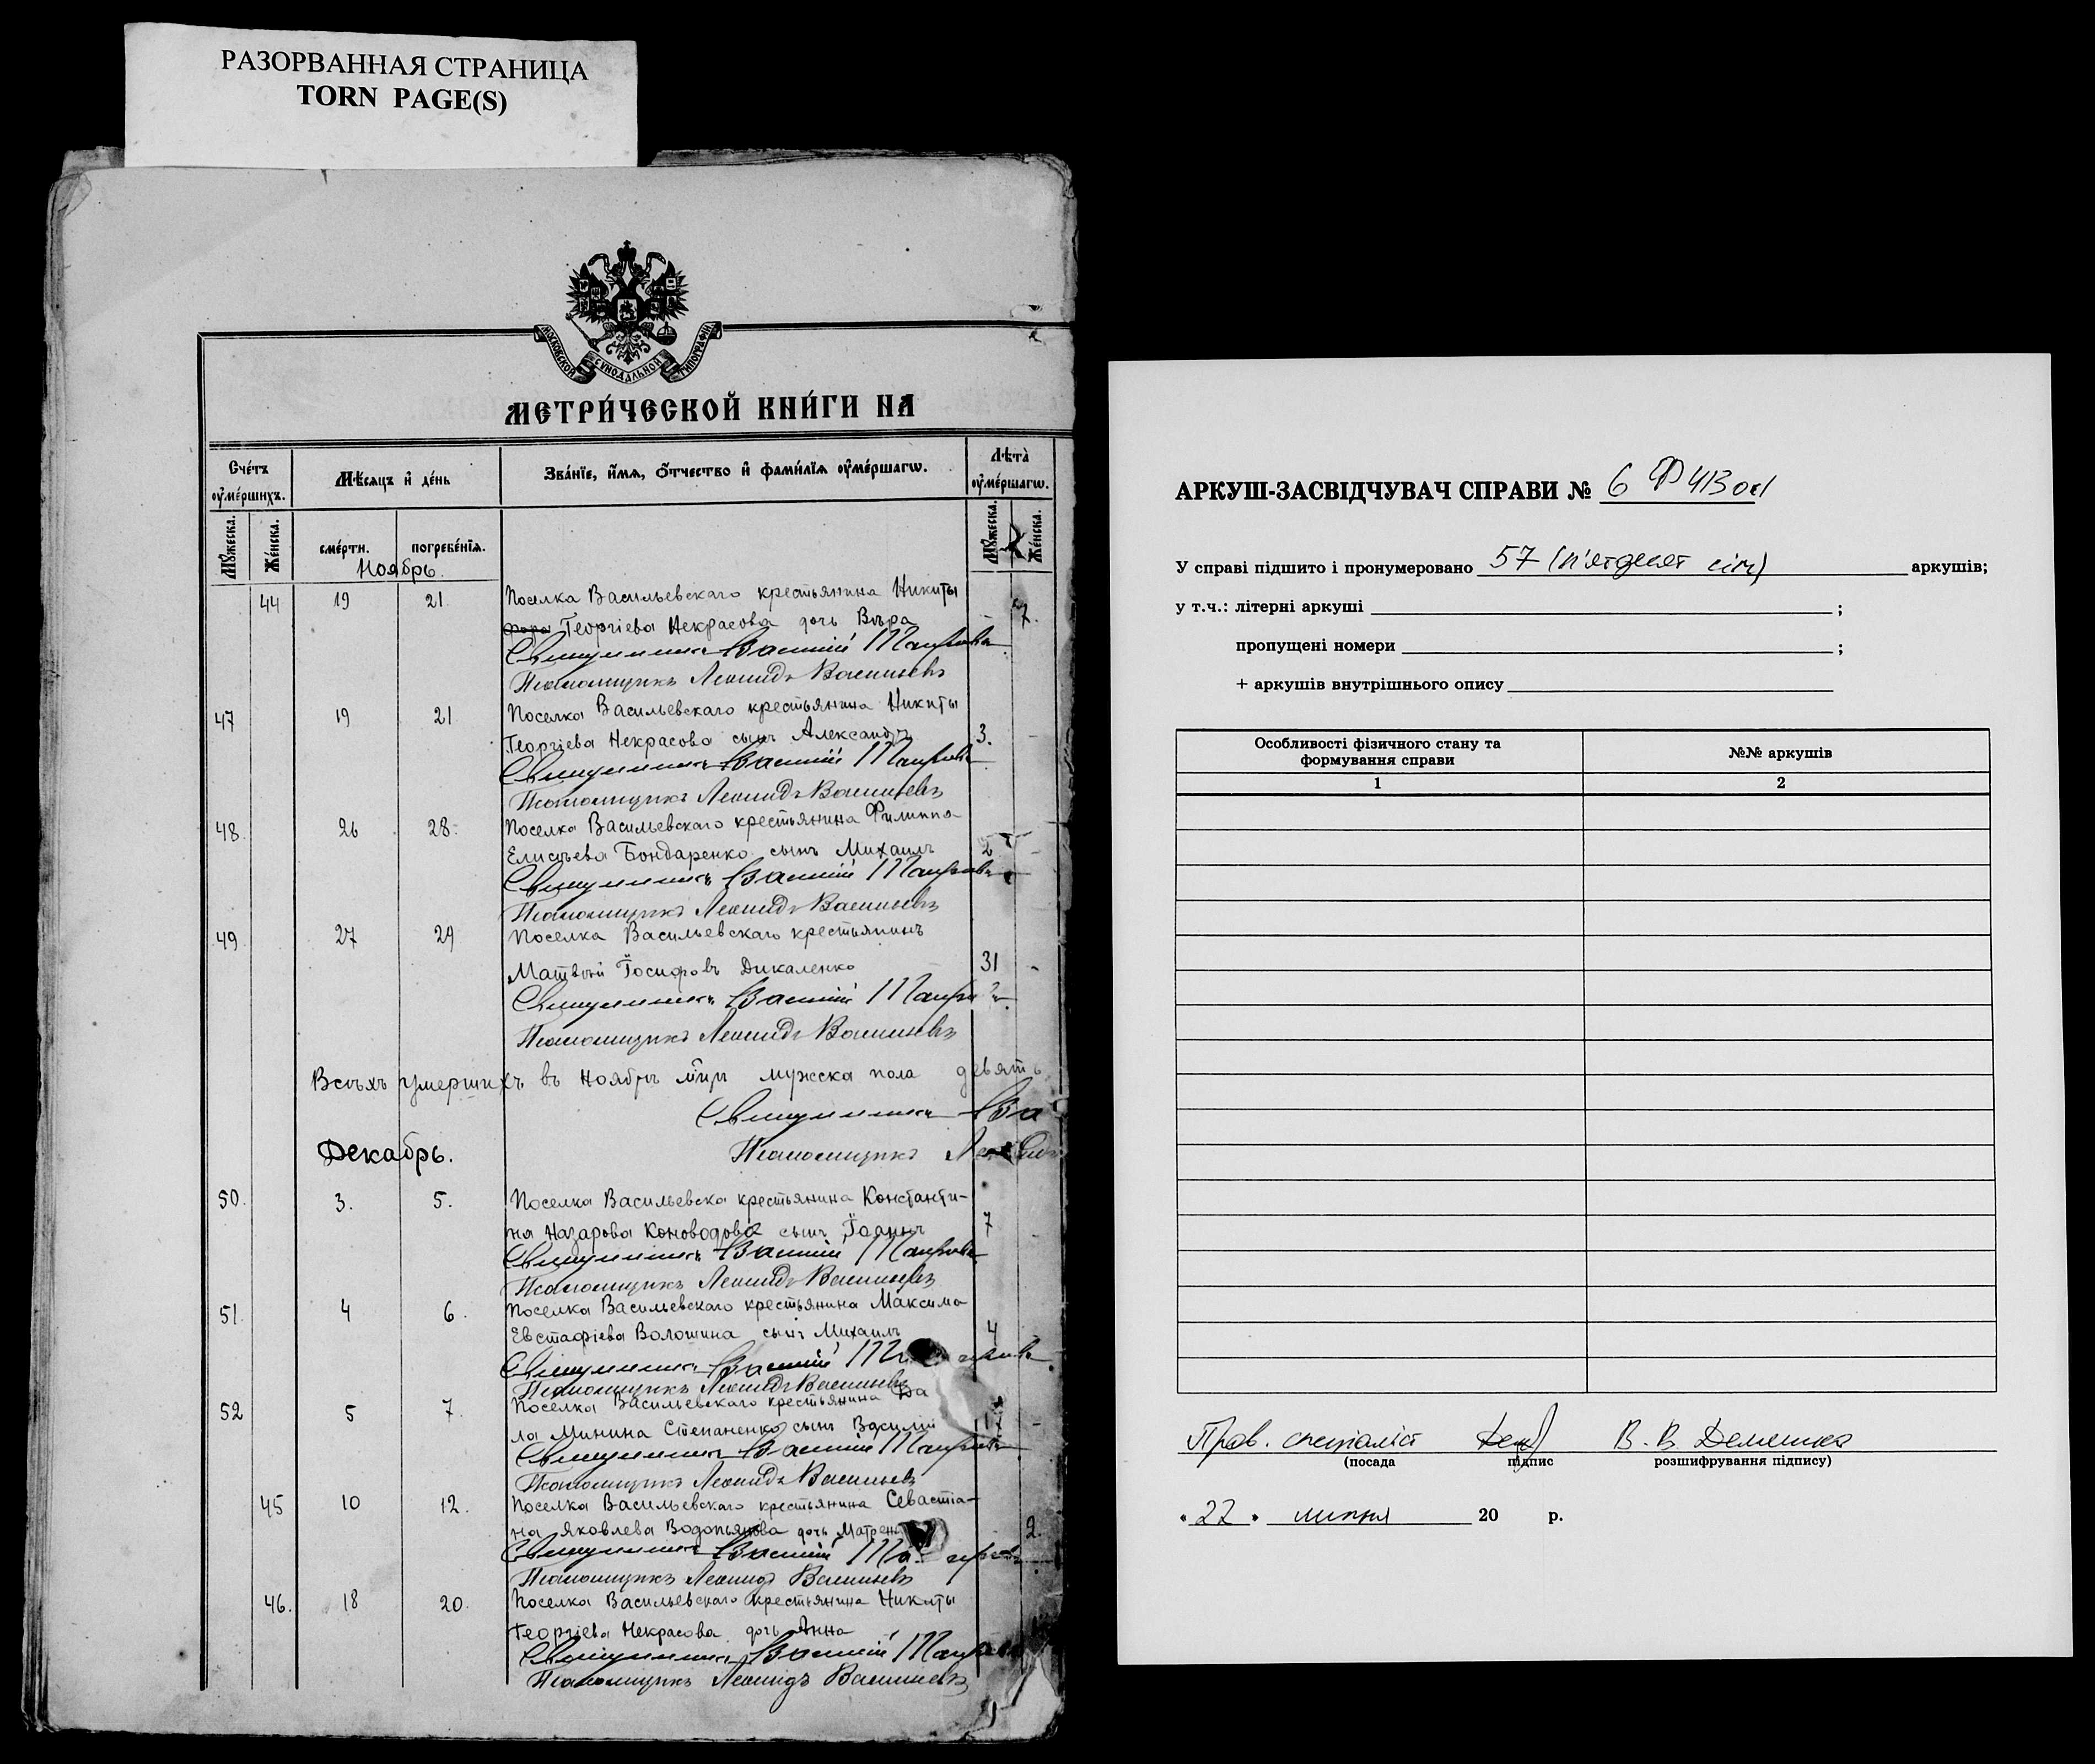 РАЗОРВАННАЯ СТРАНИЦА
TORN PAGE(S)
МОСКОВСКОЙ СѴНОДАЛЬНОЙ ТИПОГРАФІИ
МЕТРИ́ЧЕСКОЙ КНИ́ГИ НА
Сче́тъ оу҆ме́ршихъ.
Мѣ́сяцъ и҆ де́нь
Зва́нїе, и҆́мѧ, ѻ҆́тчество и҆ фами́лїѧ оу҆ме́ршагѡ.
Лѣ́та̀ оу҆ме́ршагѡ.
Мꙋ́жеска.
Же́нска.
сме́рти.
погребе́нїѧ.
Мꙋ́жеска.
Же́нска.
Ноябрь.
44 19 21 Поселка Васильевскаго крестьянина Никиты
Георгіева Некрасова дочь Вѣра 7.
Священникъ Василій
Псаломщикъ Леонидъ Васильевъ
47 19 21 Поселка Васильевскаго крестьянина Никиты
Георгіева Некрасова сынъ Александръ 3.
Священникъ Василій
Псаломщикъ Леонидъ Васильевъ
48 26 28 Поселка Васильевскаго крестьянина Филиппа
Елисѣева Бондаренко сынъ Михаилъ 2
Священникъ Василій
Псаломщикъ Леонидъ Васильевъ
49 27 29 Поселка Васильевскаго крестьянинъ
Матвѣй Іосифовъ Дикаленко 31
Священникъ Василій
Псаломщикъ Леонидъ Васильевъ
Всѣхъ умершихъ въ Ноябрѣ м-цѣ мужска пола девять
Священникъ Ва
Псаломщикъ Леонидъ
Декабрь.
50. 3. 5. Поселка Васильевска крестьянина Константи-
на Назарова Коноводова сынъ Іоаннъ 7
Священникъ Василій
Псаломщикъ Леонидъ Васильевъ
51. 4 6. Поселка Васильевскаго крестьянина Максима
Евстафіева Волошина сынъ Михаилъ 4
Священникъ Василій
Псаломщикъ Леонидъ Васильевъ
52 5 7. Поселка Васильевскаго крестьянина
ла Минина Степаненко сынъ Василій
Священникъ Василій
Псаломщикъ Леонидъ Васильевъ
45 10 12. Поселка Васильевскаго крестьянина Севастіа-
на Яковлева Водопьянова дочь Матрена 2.
Священникъ Василій
Псаломщикъ Леонидъ Васильевъ
46. 18 20. Поселка Васильевскаго крестьянина Никиты
Георгіева Некрасова дочь Анна
Священникъ Василій
Псаломщикъ Леонидъ Васильевъ
АРКУШ-ЗАСВІДЧУВАЧ СПРАВИ № 6 Ф 413 оп 1
У справі підшито і пронумеровано 57 (п'ятдесят сім) аркушів;
у т.ч.: літерні аркуші ;
пропущені номери ;
+ аркушів внутрішнього опису
Особливості фізичного стану та формування справи
№№ аркушів
1 2
Пров. спеціаліст В. В.
(посада підпис розшифрування підпису)
" 22 " липня 20 р.